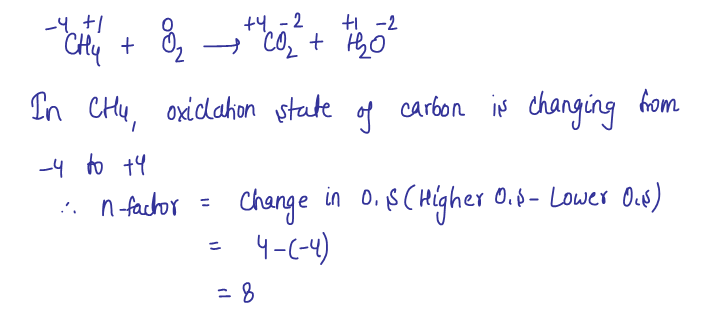 -4 +1 0 +4 -2 +1 -2
CH₄ + O₂ → CO₂ + H₂O
In CH₄, oxidation state of carbon is changing from
-4 to +4
∴ n-factor = Change in O.S (Higher O.S - Lower O.S)
= 4-(-4)
= 8